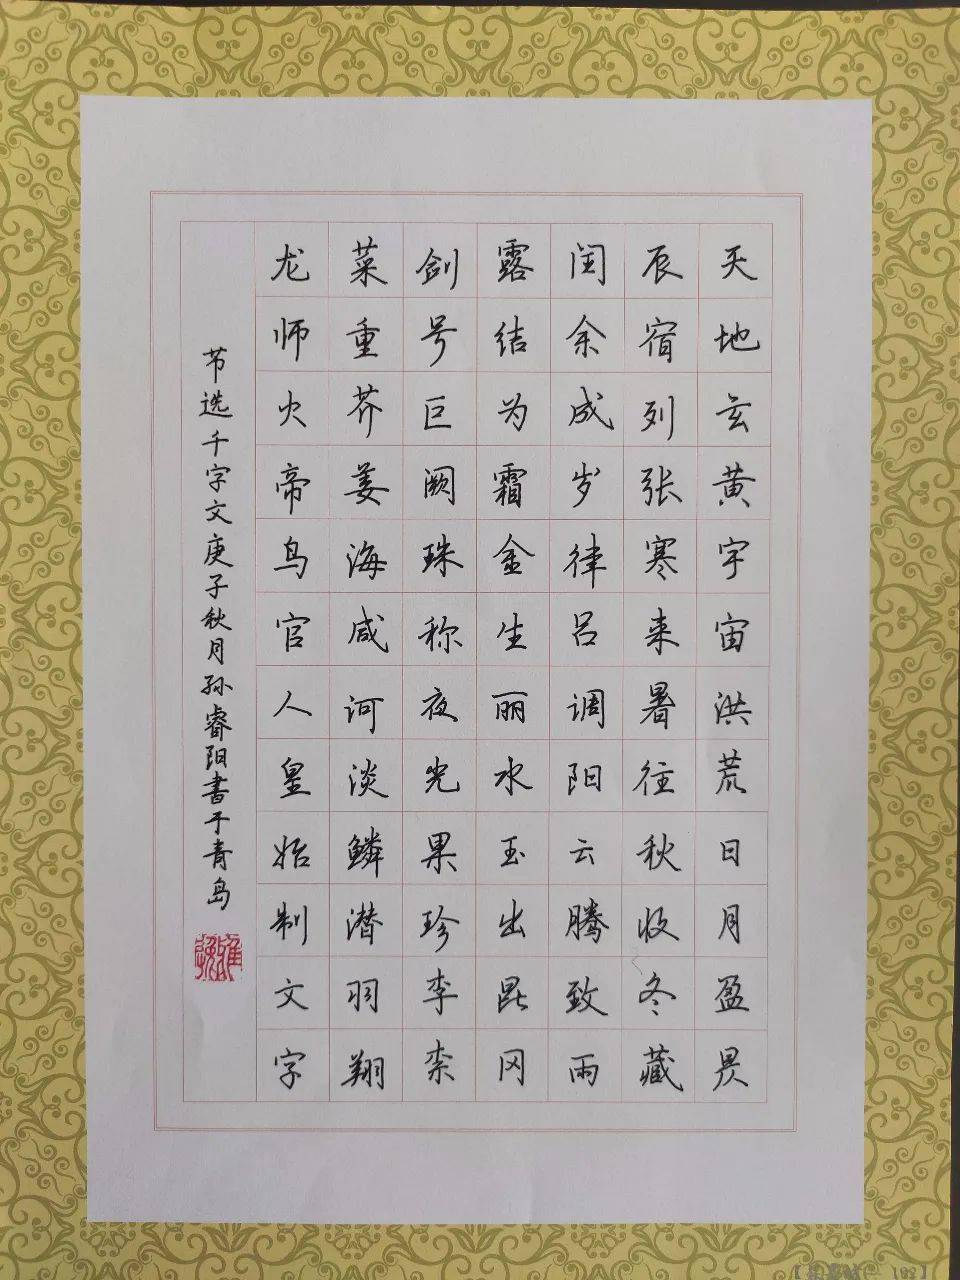 天地玄黄宇宙洪荒日月盈昃
辰宿列张寒来暑往秋收冬藏
闰余成岁律吕调阳云腾致雨
露结为霜金生丽水玉出昆冈
剑号巨阙珠称夜光果珍李柰
菜重芥姜海咸河淡鳞潜羽翔
龙师火帝鸟官人皇始制文字
节选千字文庚子秋月孙睿阳书于青岛